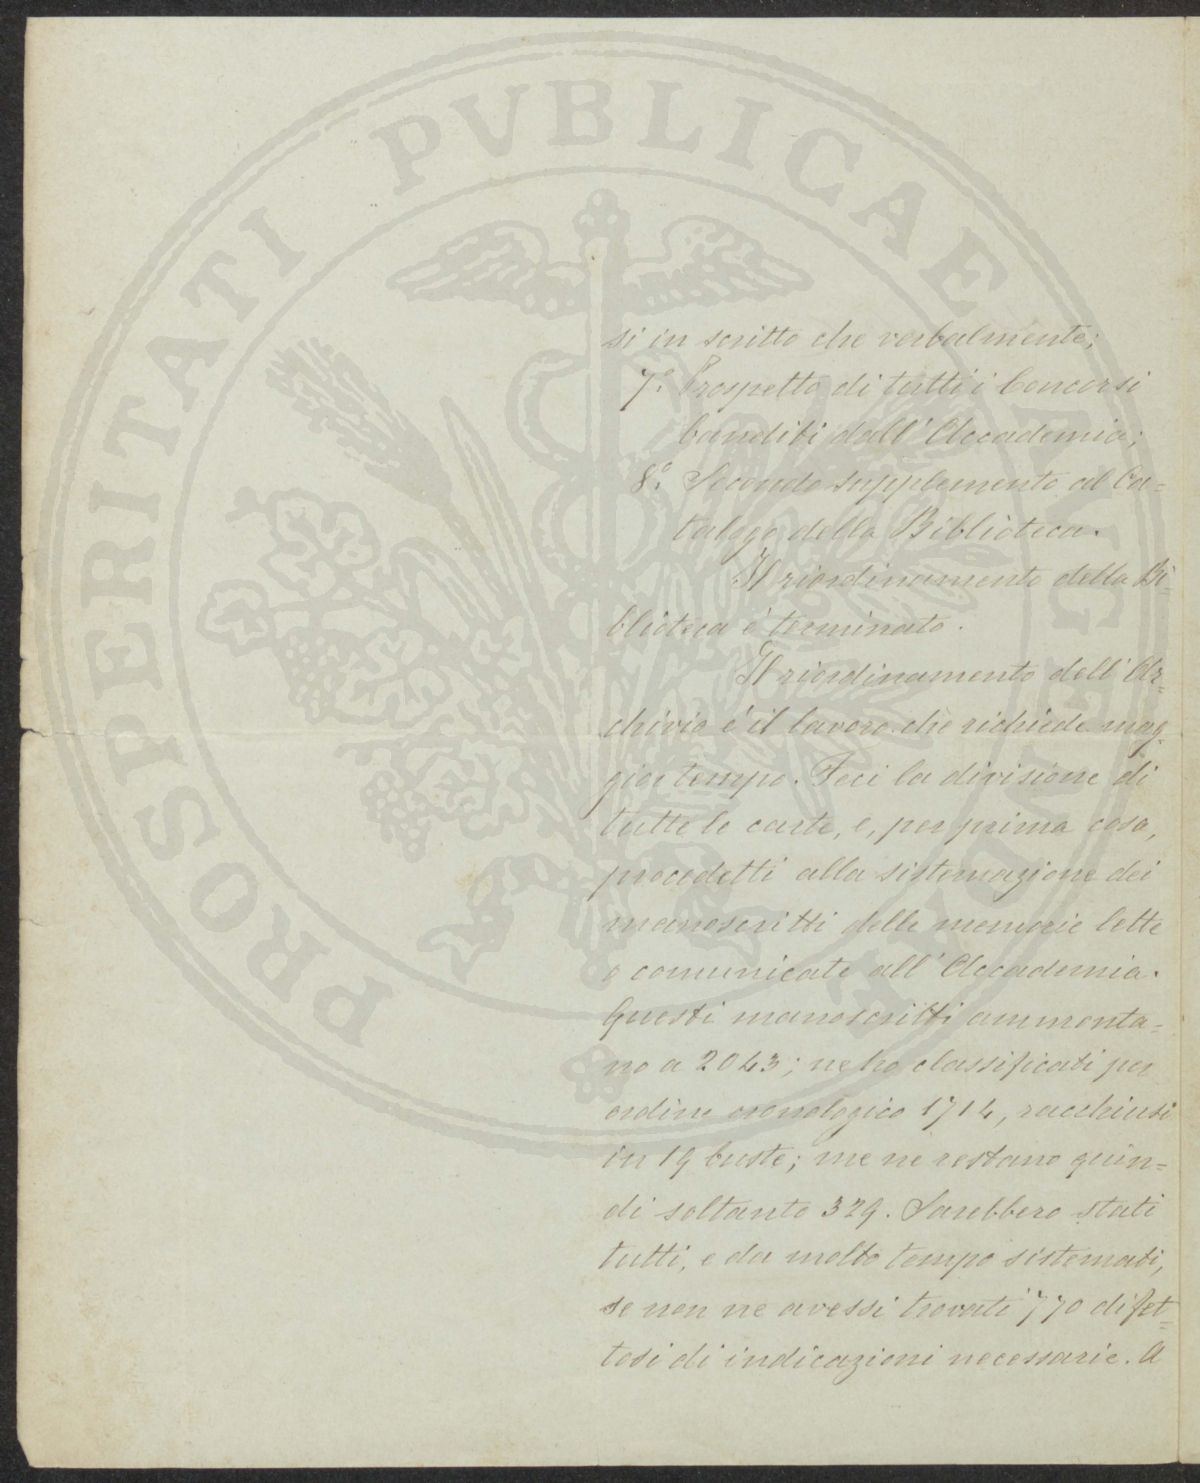 si in scritto che verbalmente;
7.° Prospetto di tutti i Concorsi
banditi dall'Accademia;
8.° Secondo supplemento al Ca=
talogo della Biblioteca.
Il riordinamento della Bi=
blioteca è terminato.
Il riordinamento dell'Ar=
chivio è il lavoro che richiede mag=
gior tempo. Feci la divisione di
tutte le carte, e, per prima cosa,
procedetti alla sistemazione dei
manoscritti delle memorie lette
o comunicate all'Accademia.
Questi manoscritti ammonta=
no a 2043; ne ho classificati per
ordine cronologico 1714, racchiusi
in 19 buste; me ne restano quin=
di soltanto 329. Sarebbero stati
tutti, e da molto tempo sistemati,
se non ne avessi trovati 770 difet=
tosi di indicazioni necessarie. A
PROSPERITATI PVBLICAE AVGENDAE